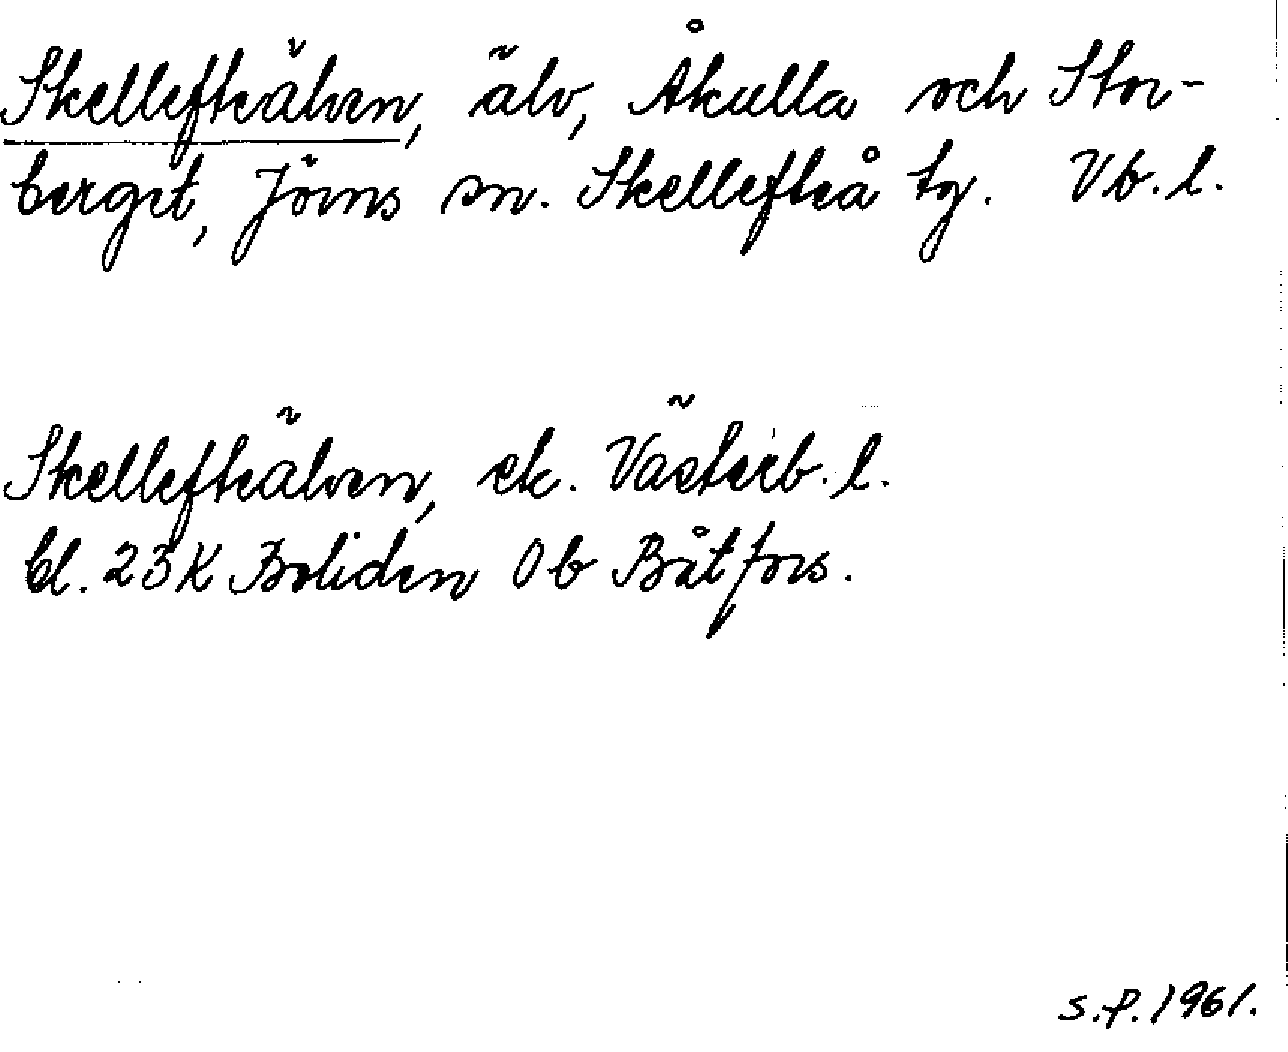 Skellefteälven, älv, Åkulla och Stor-
berget, Jörns sn. Skellefteå tg. Vb. l.
Skellefteälven, ek. Västerb. l.
bl. 23 K Boliden 0b Båtfors.
S.P. 1961.